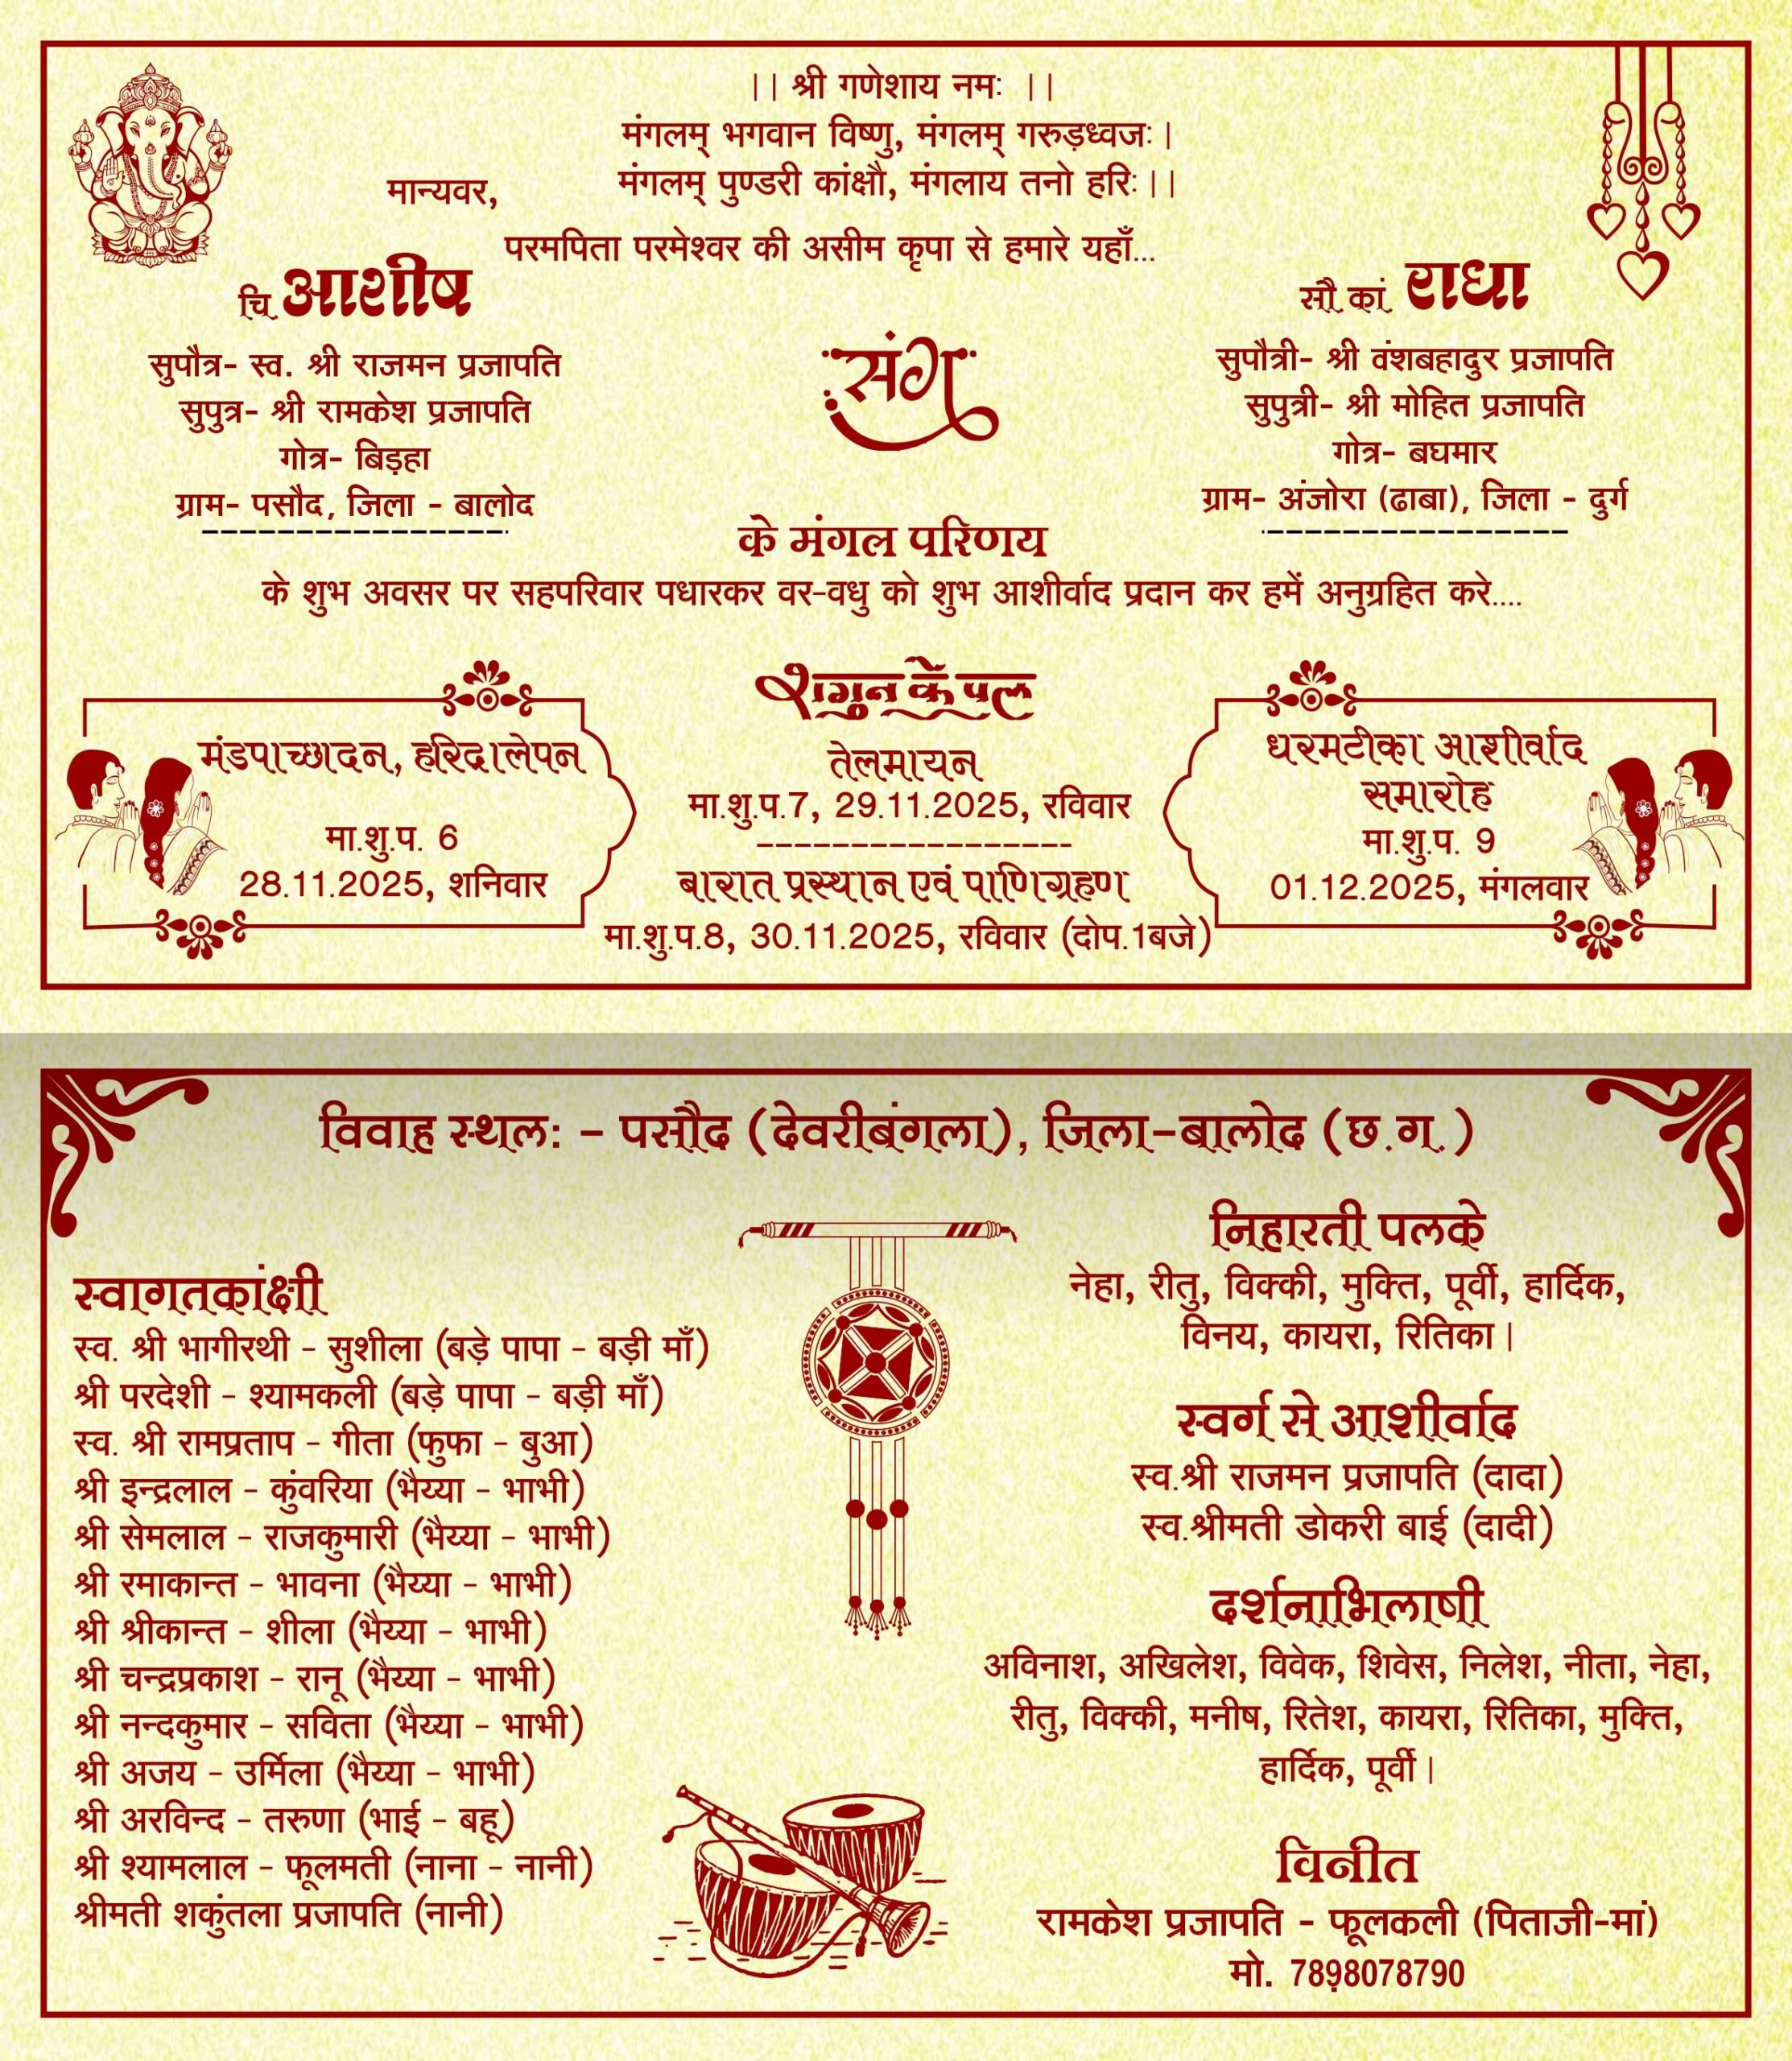 ।। श्री गणेशाय नमः ।।
मंगलम् भगवान विष्णु, मंगलम् गरुड़ध्वजः।
मंगलम् पुण्डरी कांक्षौ, मंगलाय तनो हरिः।।
मान्यवर,
परमपिता परमेश्वर की असीम कृपा से हमारे यहाँ...
चि. आशीष
सुपौत्र- स्व. श्री राजमन प्रजापति
सुपुत्र- श्री रामकेश प्रजापति
गोत्र- बिड़हा
ग्राम- पसौद, जिला - बालोद
संग
सौ.कां. राधा
सुपौत्री- श्री वंशबहादुर प्रजापति
सुपुत्री- श्री मोहित प्रजापति
गोत्र- बघमार
ग्राम- अंजोरा (ढाबा), जिला - दुर्ग
के मंगल परिणय
के शुभ अवसर पर सहपरिवार पधारकर वर-वधु को शुभ आशीर्वाद प्रदान कर हमें अनुग्रहित करे....
शगुन के पल
मंडपाच्छादन, हरिद्रालेपन
मा.शु.प. 6
28.11.2025, शनिवार
तेलमायन
मा.शु.प.7, 29.11.2025, रविवार
बारात प्रस्थान एवं पाणिग्रहण
मा.शु.प.8, 30.11.2025, रविवार (दोप.1बजे)
धरमटीका आशीर्वाद
समारोह
मा.शु.प. 9
01.12.2025, मंगलवार
विवाह स्थल: - पसौद (देवरीबंगला), जिला-बालोद (छ.ग.)
स्वागतकांक्षी
स्व. श्री भागीरथी - सुशीला (बड़े पापा - बड़ी माँ)
श्री परदेशी - श्यामकली (बड़े पापा - बड़ी माँ)
स्व. श्री रामप्रताप - गीता (फुफा - बुआ)
श्री इन्द्रलाल - कुंवरिया (भैय्या - भाभी)
श्री सेमलाल - राजकुमारी (भैय्या - भाभी)
श्री रमाकान्त - भावना (भैय्या - भाभी)
श्री श्रीकान्त - शीला (भैय्या - भाभी)
श्री चन्द्रप्रकाश - रानू (भैय्या - भाभी)
श्री नन्दकुमार - सविता (भैय्या - भाभी)
श्री अजय - उर्मिला (भैय्या - भाभी)
श्री अरविन्द - तरुणा (भाई - बहू)
श्री श्यामलाल - फूलमती (नाना - नानी)
श्रीमती शकुंतला प्रजापति (नानी)
निहारती पलके
नेहा, रीतु, विक्की, मुक्ति, पूर्वी, हार्दिक,
विनय, कायरा, रितिका।
स्वर्ग से आशीर्वाद
स्व.श्री राजमन प्रजापति (दादा)
स्व.श्रीमती डोकरी बाई (दादी)
दर्शनाभिलाषी
अविनाश, अखिलेश, विवेक, शिवेस, निलेश, नीता, नेहा,
रीतु, विक्की, मनीष, रितेश, कायरा, रितिका, मुक्ति,
हार्दिक, पूर्वी।
विनीत
रामकेश प्रजापति - फूलकली (पिताजी-मां)
मो. 7898078790